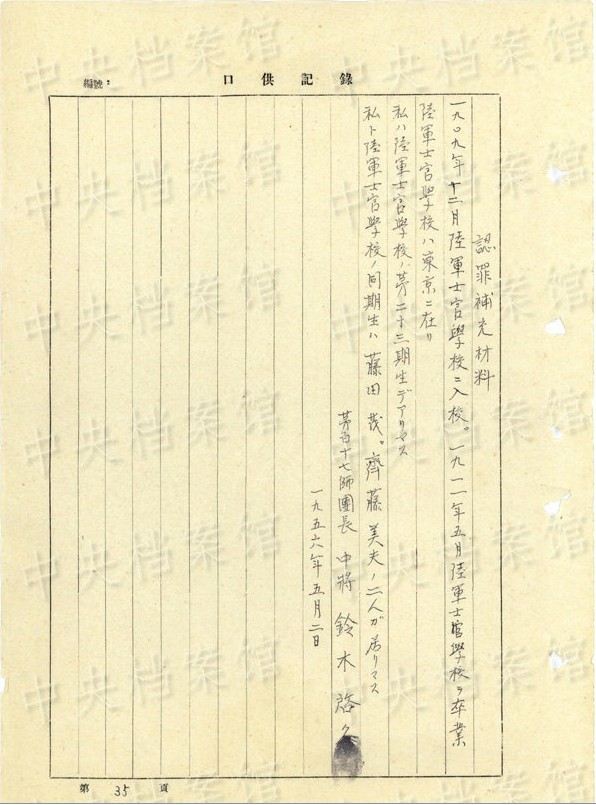 編號：
口供記錄
認罪補充材料
一九〇九年十二月陸軍士官學校ニ入校。一九一一年五月陸軍士官學校ヲ卒業
陸軍士官學校ハ東京ニ在リ
私ハ陸軍士官學校ノ第二十三期生デアリマス
私ト陸軍士官學校ノ同期生ハ藤田茂。齊藤美夫ノ二人が居リマス
第百十七師團長 中將 鈴木啓久
一九五六年五月二日
第 35 頁
中央档案馆